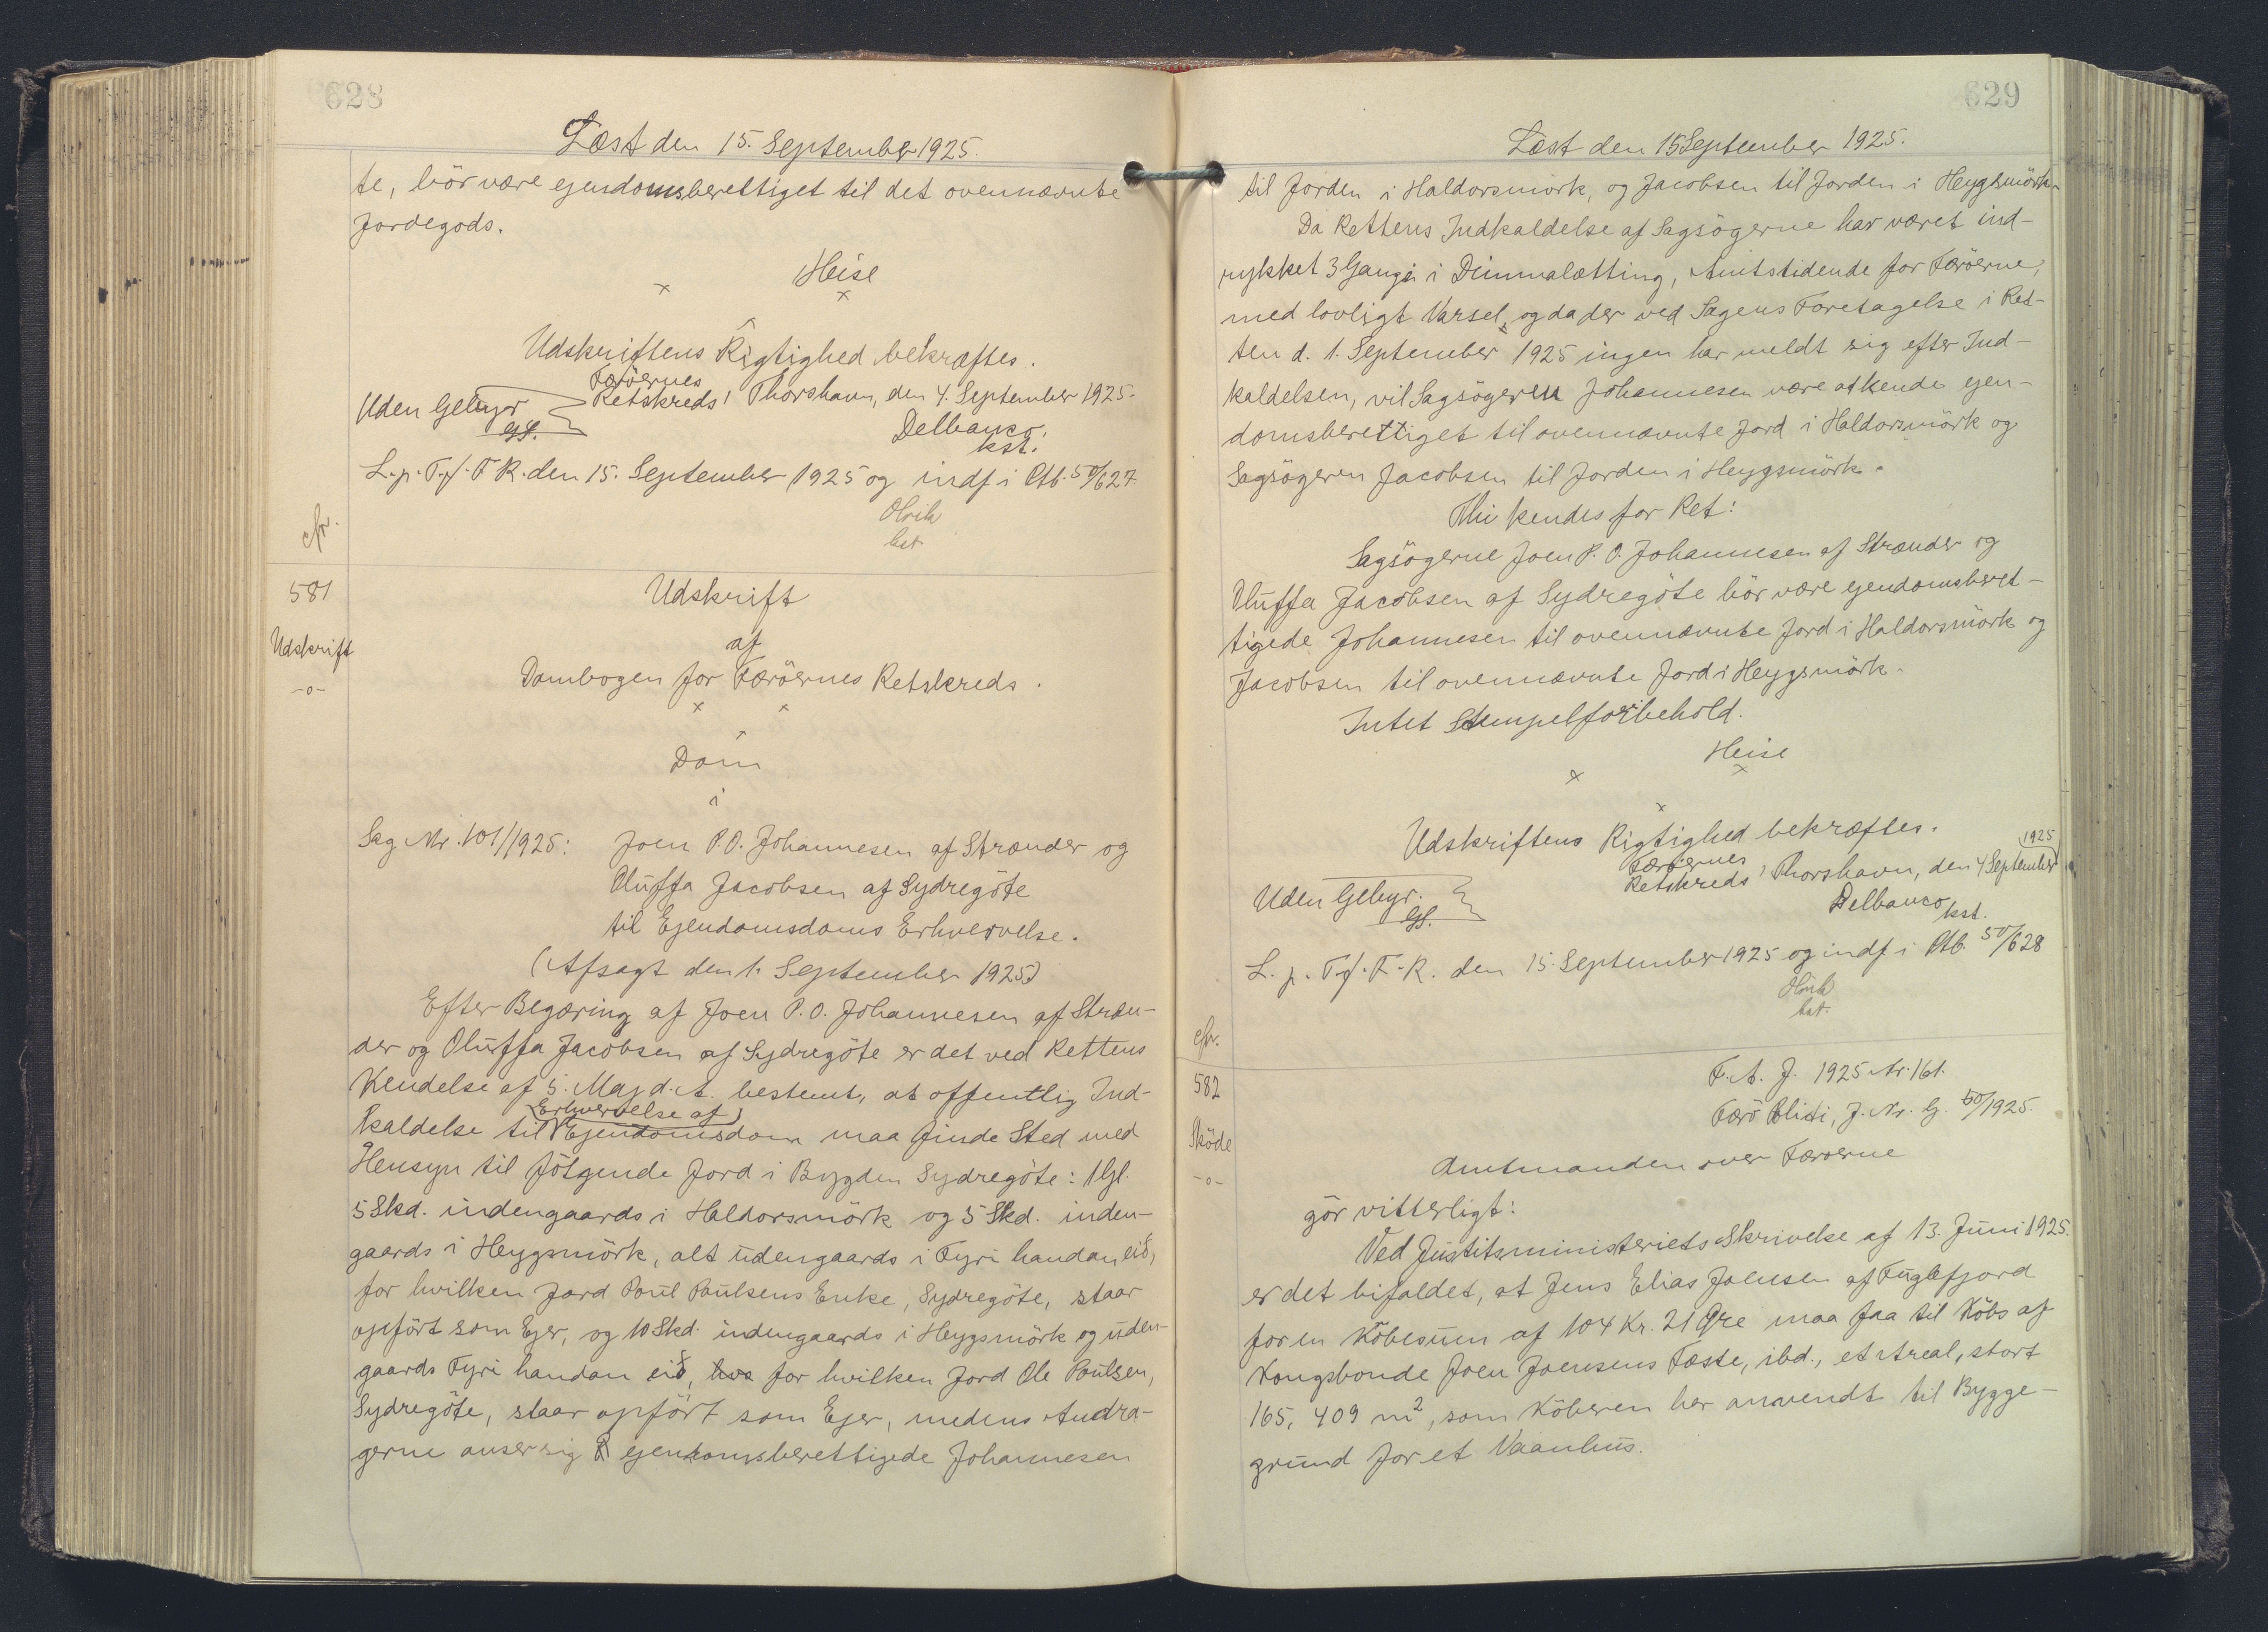 628
Læst den 15. September 1925.
te, bör være ejendomsberettiget til det ovennævnte
Jordegods.
Heise
Udskriftens Rigtighed bekræftes.
Færöernes
Retskreds, Thorshavn, den 4. September 1925.
Uden Gebyr
Delbanco
kst.
L. p. T. f. F. R. den 15. September 1925 og indf i Ptb. 50/627
cfr.
581
Udskrift
-o-
Udskrift
af
Dombogen for Færöernes Retskreds.
Dom
i
Sag Nr. 101/1925: Joen P. O. Johannesen af Strænder og
Oluffa Jacobsen af Sydregöte
til Ejendomsdoms Erhvervelse.
(Afsagt den 1. September 1925)
Efter Begæring af Joen P. O. Johannesen af Stræn-
der og Oluffa Jacobsen af Sydregöte er det ved Rettens
Kendelse af 5. Maj d. A. bestemt, at offentlig Ind-
Erhvervelse af
kaldelse til Ejendomsdom maa finde Sted med
Hensyn til fölgende Jord i Bygden Sydregöte: 1 Gl.
5 Skd. indengaards i Haldorsmörk og 5 Skd. inden-
gaards i Heygsmörk, alt udengaards i Fyri handan eið,
for hvilken Jord Poul Poulsens Enke, Sydregöte, staar
opfört som Ejer, og 10 Skd. indengaards i Heygsmörk og uden-
gaards Fyri handan eið, for hvilken Jord Ole Poulsen,
Sydregöte, staar opfört som Ejer, medens Andra-
gerne anser sig ejendomsberettigede Johannesen
629
Læst den 15 September 1925.
til Jorden i Haldorsmörk, og Jacobsen til Jorden i Heygsmörk.
Da Rettens Indkaldelse af Sagsögerne har været ind-
rykket 3 Gange i Dimmalætting, Amtstidende for Færöerne,
med lovligt Varsel, og da der ved Sagens Foretagelse i Ret-
ten d. 1. September 1925 ingen har meldt sig efter Ind-
kaldelsen, vil Sagsögeren Johannesen være at kende ejen-
domsberettiget til ovennævnte Jord i Haldorsmörk og
Sagsögeren Jacobsen til Jorden i Heygsmörk.
Thi kendes for Ret:
Sagsögerne Joen P. O. Johannesen af Strænder og
Oluffa Jacobsen af Sydregöte bör være ejendomsberet-
tigede Johannesen til ovennævnte Jord i Haldorsmörk og
Jacobsen til ovennævnte Jord i Heygsmörk.
Intet Stempelforbehold.
Heise
Udskriftens Rigtighed bekræftes.
1925
Færöernes
Retskreds, Thorshavn, den 4 September
Uden Gebyr.
Delbanco
kst.
L. p. T. f. F. R. den 15. September 1925 og indf i Ptb. 50/628
cfr.
582
Sköde
-o-
F. A. J. 1925 Nr. 161.
Færö Politi, J. Nr. G. 50/1925.
Amtmanden over Færøerne
gör vitterligt:
Ved Justitsministeriets Skrivelse af 13. Juni 1925.
er det bifaldet, at Jens Elias Joensen af Fuglefjord
for en Köbesum af 104 Kr. 21 Øre maa faa til Köbs af
Kongsbonde Joen Joensens Fæste, ibd., et Areal, stort
165,409 m², som Köberen har anvendt til Bygge-
grund for et Vaanhus.